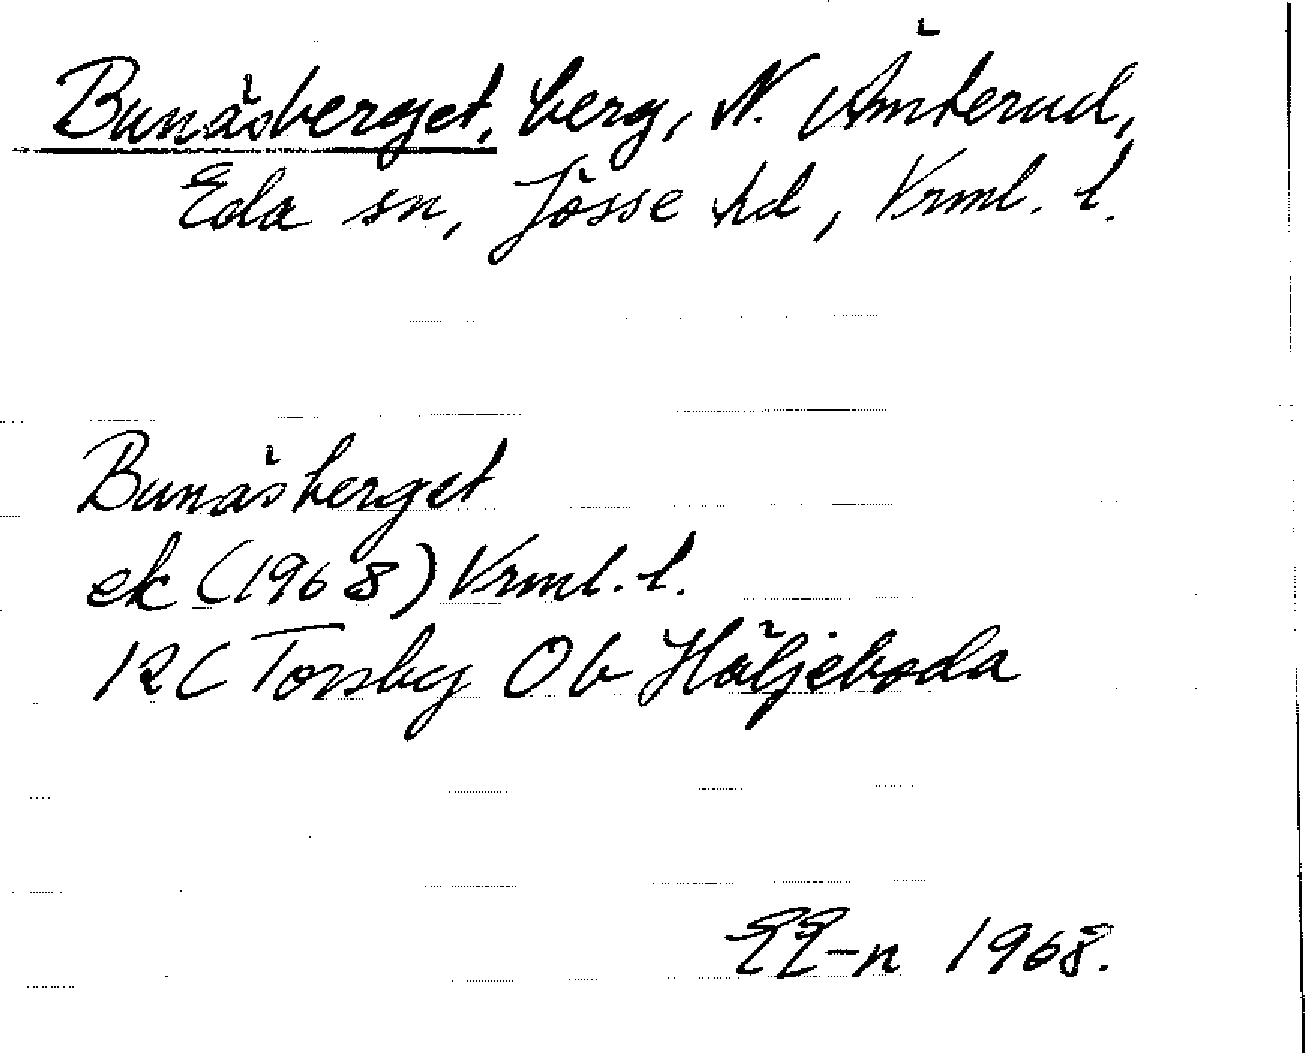 Bunäsberget, berg, N. Ämterud,
Eda sn, Jösse hd, Vrml. l.
Bunäsberget
ek (1968) Vrml. l.
12C Torsby 0b Häljeboda
EE-n 1968.